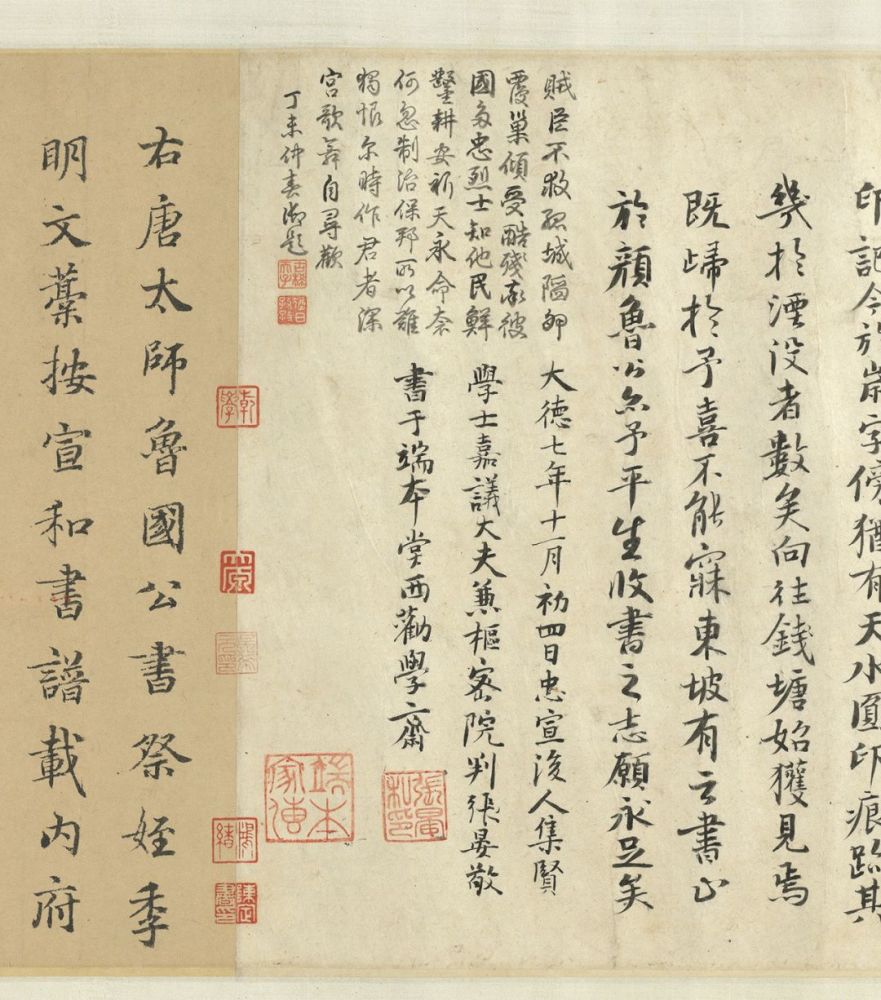 印記今於歲字傍猶有天水圓印痕跡其
幾於湮没者數矣向往錢塘始獲見焉
既歸於予喜不能寐東坡有云書止
於顏魯公尒予平生收書之志願永足矣
大德七年十一月初四日忠宣後人集賢
學士嘉議大夫兼樞密院判張晏敬
書于端本堂西勸學齋
賊臣不救孤城隔卵
覆巢傾受酷殘亦彼
國多忠烈士知他民鮮
鑿耕安祈天永命奈
何忽制治保邦所以難
獨恨尔時作君者深
宮歌舞自尋歡
丁未仲春御題
張晏私印
端本家傳
右唐太師魯國公書祭姪季
明文藁按宣和書譜載內府